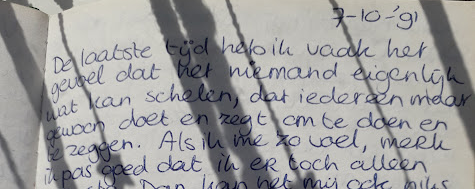 7-10-'91
De laatste tijd heb ik vaak het
gevoel dat het niemand eigenlijk
wat kan schelen, dat iedereen maar
gewoon doet en zegt om te doen en
te zeggen. Als ik me zo voel, merk
ik pas goed dat ik er toch alleen
Dan kan het mij ook niks